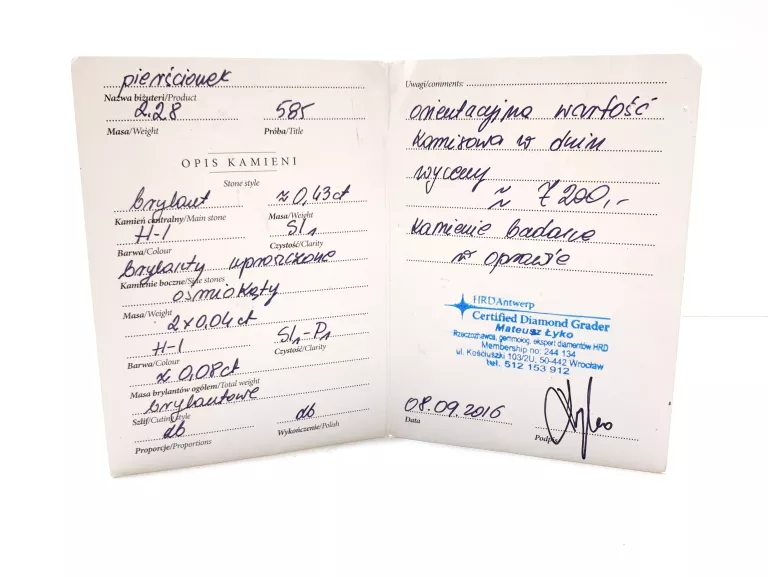 pierścionek
Nazwa biżuterii/Product
2.28 585
Masa/Weight Próba/Title
OPIS KAMIENI
Stone style
brylant ≈ 0,43ct
Kamień centralny/Main stone Masa/Weight
H-I SI1
Barwa/Colour Czystość/Clarity
brylanty uproszczone
Kamienie boczne/Side stones
ośmiokąty
Masa/Weight
2x0.04ct SI1-P1
H-I Czystość/Clarity
Barwa/Colour
≈ 0,08ct
Masa brylantów ogółem/Total weight
brylantowe
Szlif/Cuting style
db db
Proporcje/Proportions Wykończenie/Polish
Uwagi/comments:
orientacyjna wartość
kamisowa w dniu
wyceny
≈ 7200,-
kamienie badane
w oprawie
HRD Antwerp
Certified Diamond Grader
Mateusz Łyko
Rzeczoznawca, gemmolog, ekspert diamentów HRD
Membership no: 244 134
ul. Kościuszki 103/2U, 50-442 Wrocław
tel. 512 153 912
08.09.2016
Data Podpis